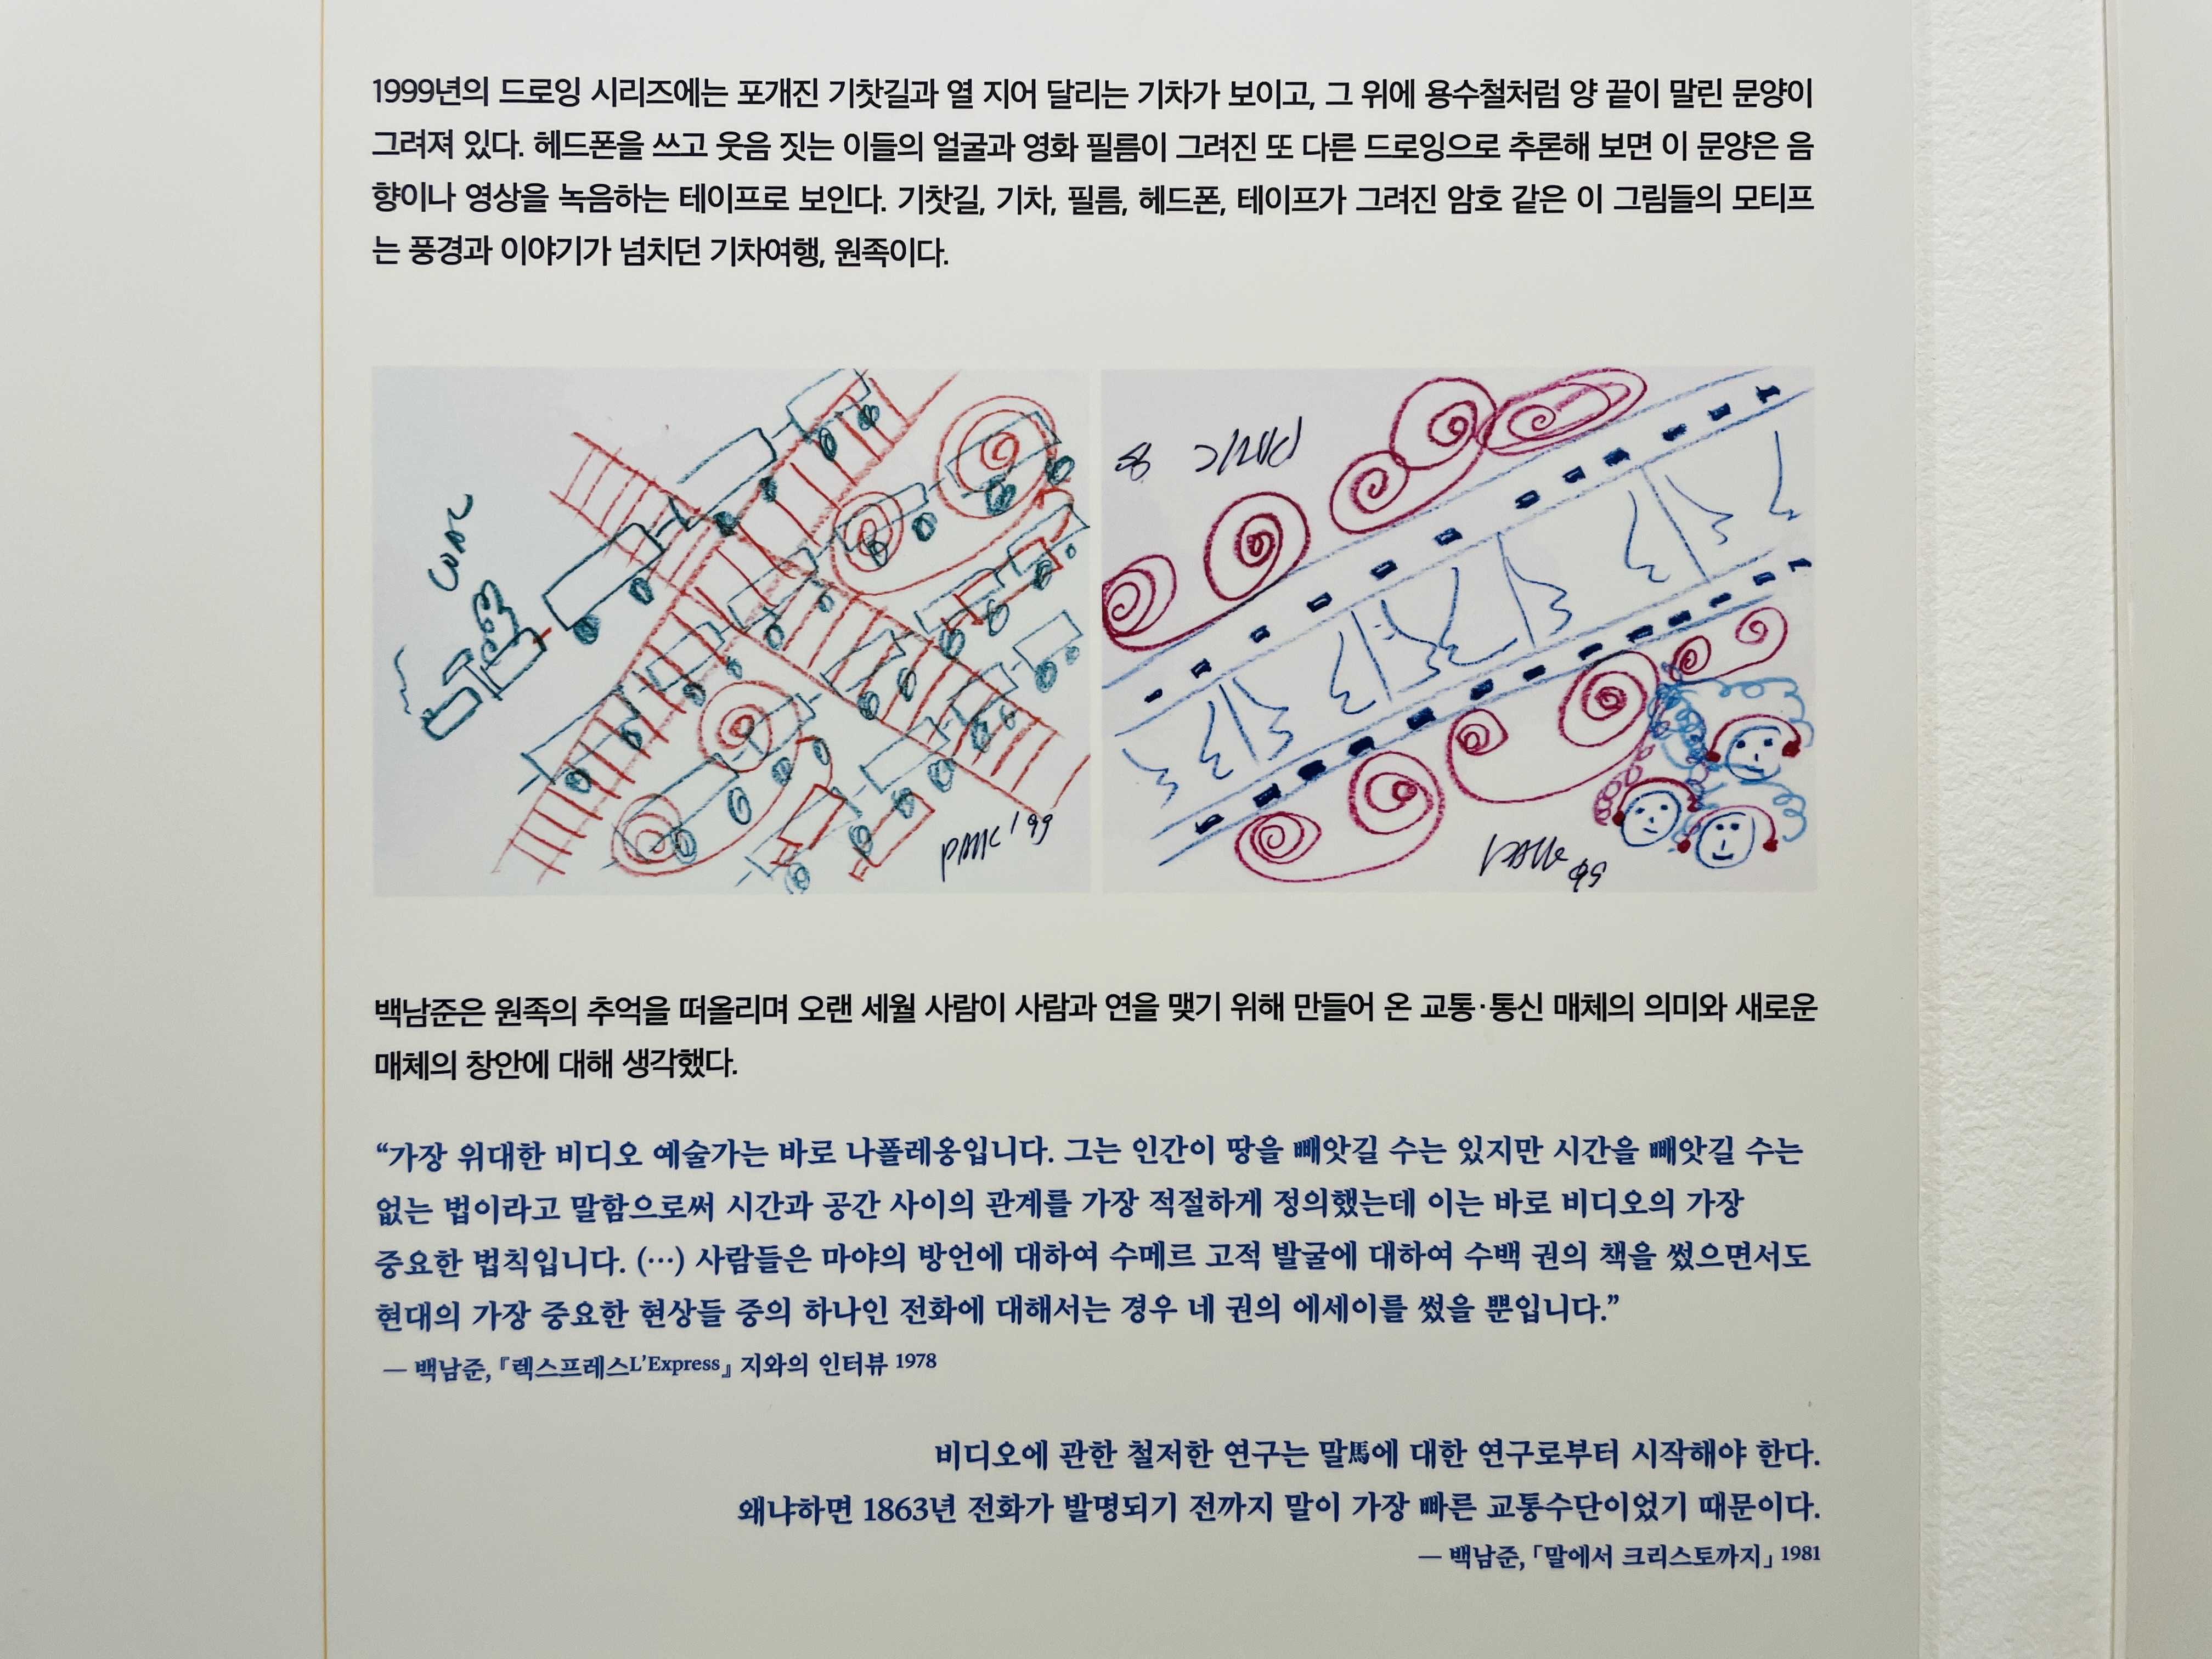 1999년의 드로잉 시리즈에는 포개진 기찻길과 열 지어 달리는 기차가 보이고, 그 위에 용수철처럼 양 끝이 말린 문양이
그려져 있다. 헤드폰을 쓰고 웃음 짓는 이들의 얼굴과 영화 필름이 그려진 또 다른 드로잉으로 추론해 보면 이 문양은 음
향이나 영상을 녹음하는 테이프로 보인다. 기찻길, 기차, 필름, 헤드폰, 테이프가 그려진 암호 같은 이 그림들의 모티프
는 풍경과 이야기가 넘치던 기차여행, 원족이다.
PAIK '99
99
백남준은 원족의 추억을 떠올리며 오랜 세월 사람이 사람과 연을 맺기 위해 만들어 온 교통·통신 매체의 의미와 새로운
매체의 창안에 대해 생각했다.
“가장 위대한 비디오 예술가는 바로 나폴레옹입니다. 그는 인간이 땅을 빼앗길 수는 있지만 시간을 빼앗길 수는
없는 법이라고 말함으로써 시간과 공간 사이의 관계를 가장 적절하게 정의했는데 이는 바로 비디오의 가장
중요한 법칙입니다. (…) 사람들은 마야의 방언에 대하여 수메르 고적 발굴에 대하여 수백 권의 책을 썼으면서도
현대의 가장 중요한 현상들 중의 하나인 전화에 대해서는 경우 네 권의 에세이를 썼을 뿐입니다.”
— 백남준, 『렉스프레스L’Express』 지와의 인터뷰 1978
비디오에 관한 철저한 연구는 말馬에 대한 연구로부터 시작해야 한다.
왜냐하면 1863년 전화가 발명되기 전까지 말이 가장 빠른 교통수단이었기 때문이다.
— 백남준, 「말에서 크리스토까지」 1981